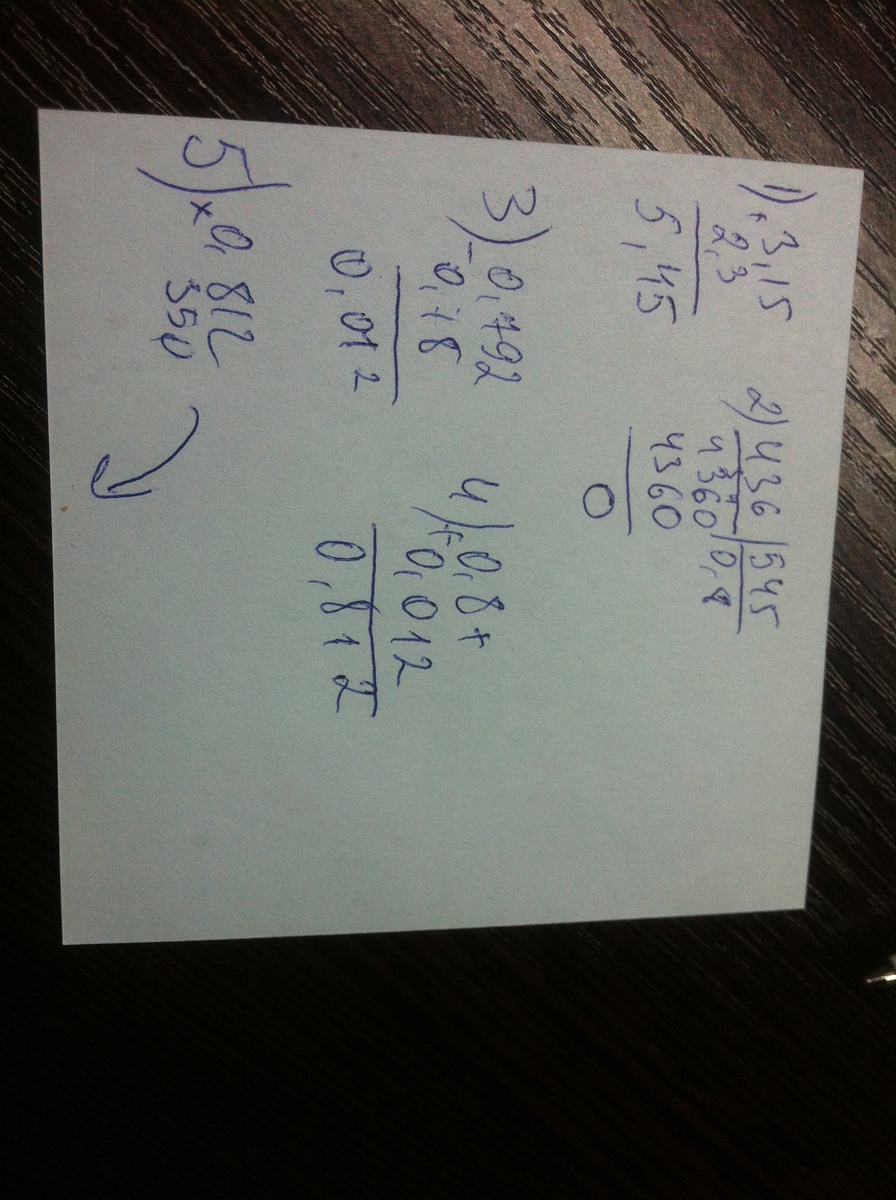 1) + 3,15
2,3
5,45
2) 436 | 545
4360 | 0,8
4360
0
3) - 0,792
0,78
0,012
4) + 0,8+
0,012
0,812
5) × 0,812
350